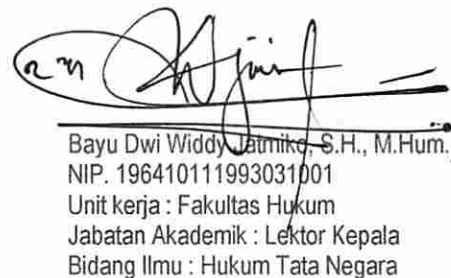 Bayu Dwi Widdy Jatmiko, S.H., M.Hum.
NIP. 196410111993031001
Unit kerja : Fakultas Hukum
Jabatan Akademik : Lektor Kepala
Bidang Ilmu : Hukum Tata Negara